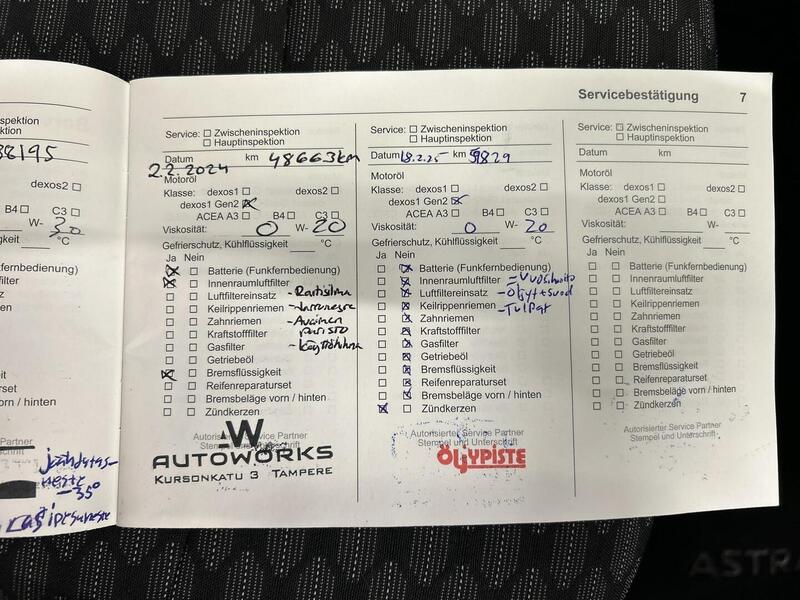 Servicebestätigung 7
Inspektion
38195
B4 C3
W- 30
keit °C
nfernbedienung)
ilter
tz
en
er
eit
rset
rn / hinten
Service Partner
-35°
Service: Zwischeninspektion
Hauptinspektion
Datum km 48663km
2.2.2024
Motoröl
Klasse: dexos1 dexos2
dexos1 Gen2
ACEA A3 B4 C3
Viskosität: 0 W- 20
Gefrierschutz, Kühlflüssigkeit °C
Ja Nein
Batterie (Funkfernbedienung)
Innenraumluftfilter
Luftfiltereinsatz - Raitisilma
Keilrippenriemen - Jarruneste
Zahnriemen - Avaimen
Kraftstofffilter paristo
Gasfilter
Getriebeöl
Bremsflüssigkeit
Reifenreparaturset
Bremsbeläge vorn / hinten
Zündkerzen
Autorisierter Service Partner
W
AUTOWORKS
KURSONKATU 3 TAMPERE
Service: Zwischeninspektion
Hauptinspektion
Datum 18.2.25 km 59829
Motoröl
Klasse: dexos1 dexos2
dexos1 Gen2
ACEA A3 B4 C3
Viskosität: 0 W- 20
Gefrierschutz, Kühlflüssigkeit °C
Ja Nein
Batterie (Funkfernbedienung)
Innenraumluftfilter - Vuosihuolto
Luftfiltereinsatz - Öljyt + suod
Keilrippenriemen - Tulpat
Zahnriemen
Kraftstofffilter
Gasfilter
Getriebeöl
Bremsflüssigkeit
Reifenreparaturset
Bremsbeläge vorn / hinten
Zündkerzen
Autorisierter Service Partner
Stempel und Unterschrift
ÖLJYPISTE
Service: Zwischeninspektion
Hauptinspektion
Datum km
Motoröl
Klasse: dexos1 dexos2
dexos1 Gen2
ACEA A3 B4 C3
Viskosität: W-
Gefrierschutz, Kühlflüssigkeit °C
Ja Nein
Batterie (Funkfernbedienung)
Innenraumluftfilter
Luftfiltereinsatz
Keilrippenriemen
Zahnriemen
Kraftstofffilter
Gasfilter
Getriebeöl
Bremsflüssigkeit
Reifenreparaturset
Bremsbeläge vorn / hinten
Zündkerzen
Autorisierter Service Partner
Stempel und Unterschrift
ASTRA